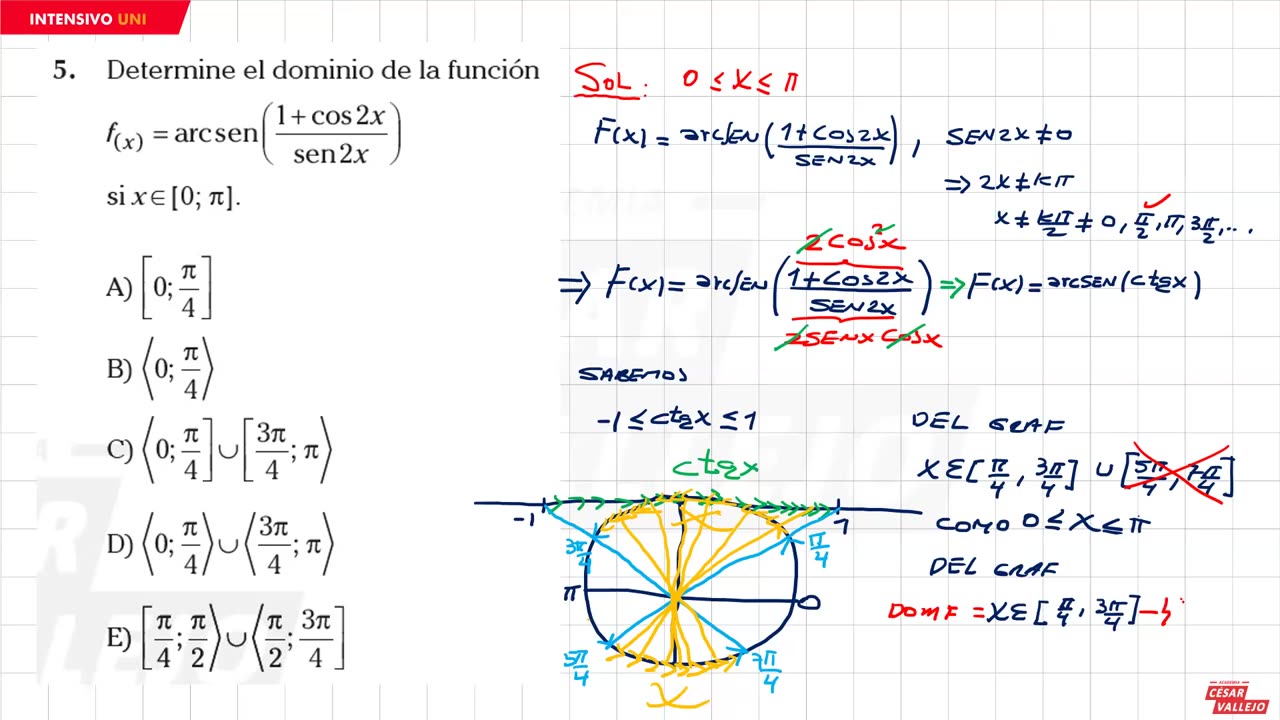 INTENSIVO UNI
5. Determine el dominio de la función
f(x) = arc sen((1+cos2x)/(sen2x))
si x∈[0; π].
A) [0; π/4]
B) ⟨0; π/4⟩
C) ⟨0; π/4] ∪ [3π/4; π⟩
D) ⟨0; π/4⟩ ∪ ⟨3π/4; π⟩
E) [π/4; π/2⟩ ∪ ⟨π/2; 3π/4]
SOL: 0 ≤ x ≤ π
F(x) = arcSEN((1+COS2X)/(SEN2X)), SEN2X ≠ 0
⇒ 2X ≠ kπ
X ≠ kπ/2 ≠ 0, π/2, π, 3π/2, ...
2COS²X
⇒ F(x) = arcSEN((1+COS2X)/(SEN2X)) ⇒ F(x) = arcSEN(ctgx)
2SENX COSX
SABEMOS
-1 ≤ ctgx ≤ 1
ctgx
-1 1
3π/4 π/4
π 0
5π/4 7π/4
X
DEL GRAF
X∈[π/4, 3π/4] ∪ [5π/4, 7π/4]
COMO 0 ≤ X ≤ π
DEL GRAF
DOMF = X∈[π/4, 3π/4] –
ACADEMIA
CÉSAR
VALLEJO